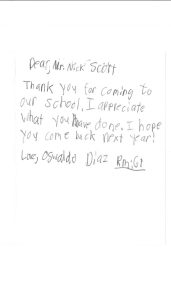 Dear, Mr. Nick Scott
Thank you for coming to
our school, I appreciate
what you have done. I hope
you come back next year!
Love, Oswaldo Diaz Rm:G1